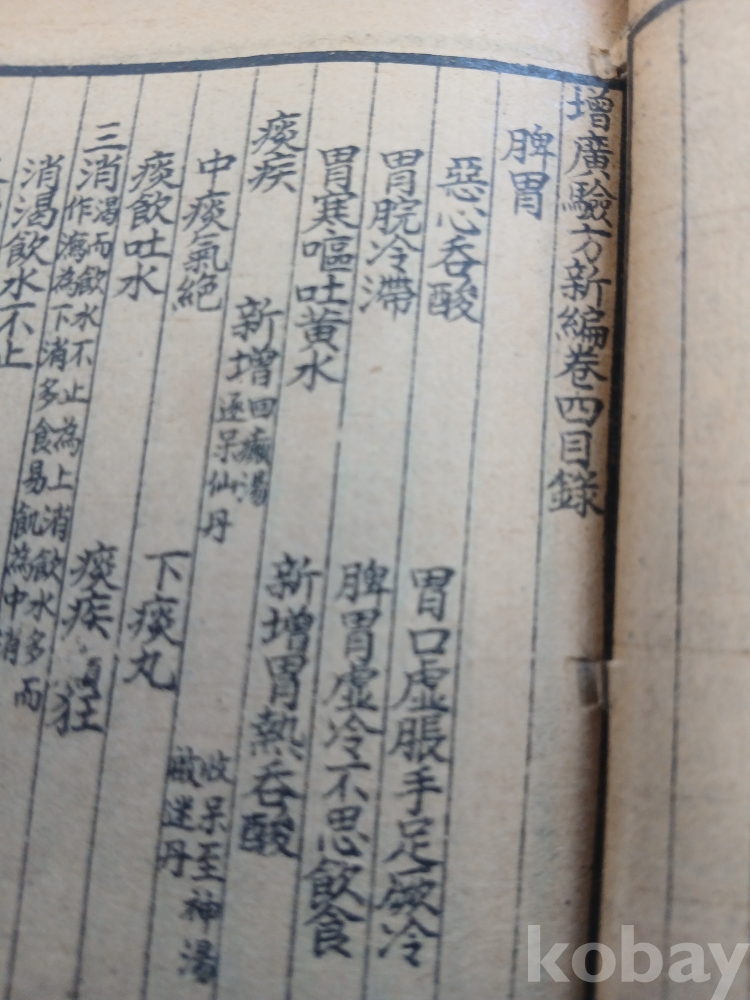 增廣驗方新編卷四目錄
脾胃
惡心吞酸 胃口虛脹手足厥冷
胃脘冷滯 脾胃虛冷不思飲食
胃寒嘔吐黃水 新增胃熱吞酸
痰疾 新增
回癲湯 收呆至神湯
逐呆仙丹 啟迷丹
中痰氣絕 下痰丸
痰飲吐水 痰疾 狂
三消
渴而飲水不止為上消飲水多而
作瀉為下消多食易飢為中消
消渴飲水不止
kobay